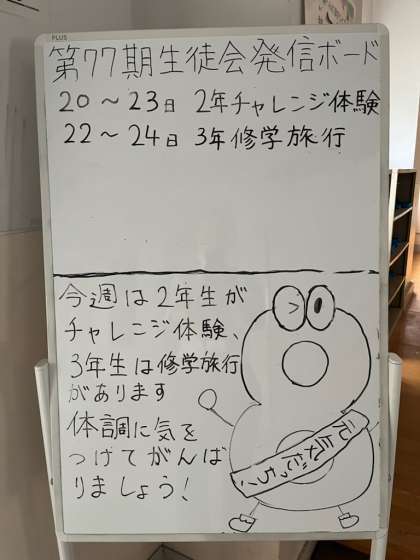 PLUS
第77期生徒会発信ボード
20～23日 2年チャレンジ体験
22～24日 3年修学旅行
今週は2年生が
チャレンジ体験、
3年生は修学旅行
があります
体調に気を
つけてがんば
りましょう!